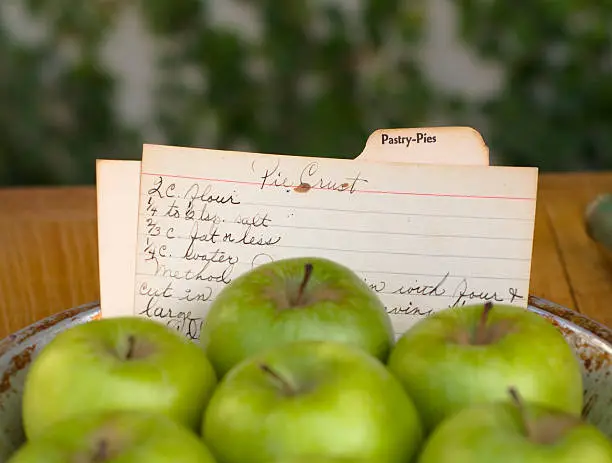 Pastry-Pies
Pie Crust
2 C. flour
1/4 to 1/2 tsp. salt
2/3 C. fat or less
1/4 C. water
Method in with flour &
cut in
large